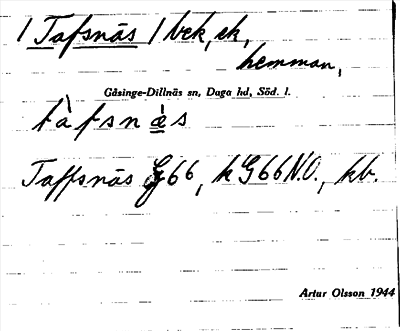 / Tafsnäs / bek, ek,
hemman,
Gåsinge-Dillnäs sn, Daga hd, Söd. l.
tàfsnæ̀s
Taffsnäs G66, k G66 N.O., kb.
Artur Olsson 1944